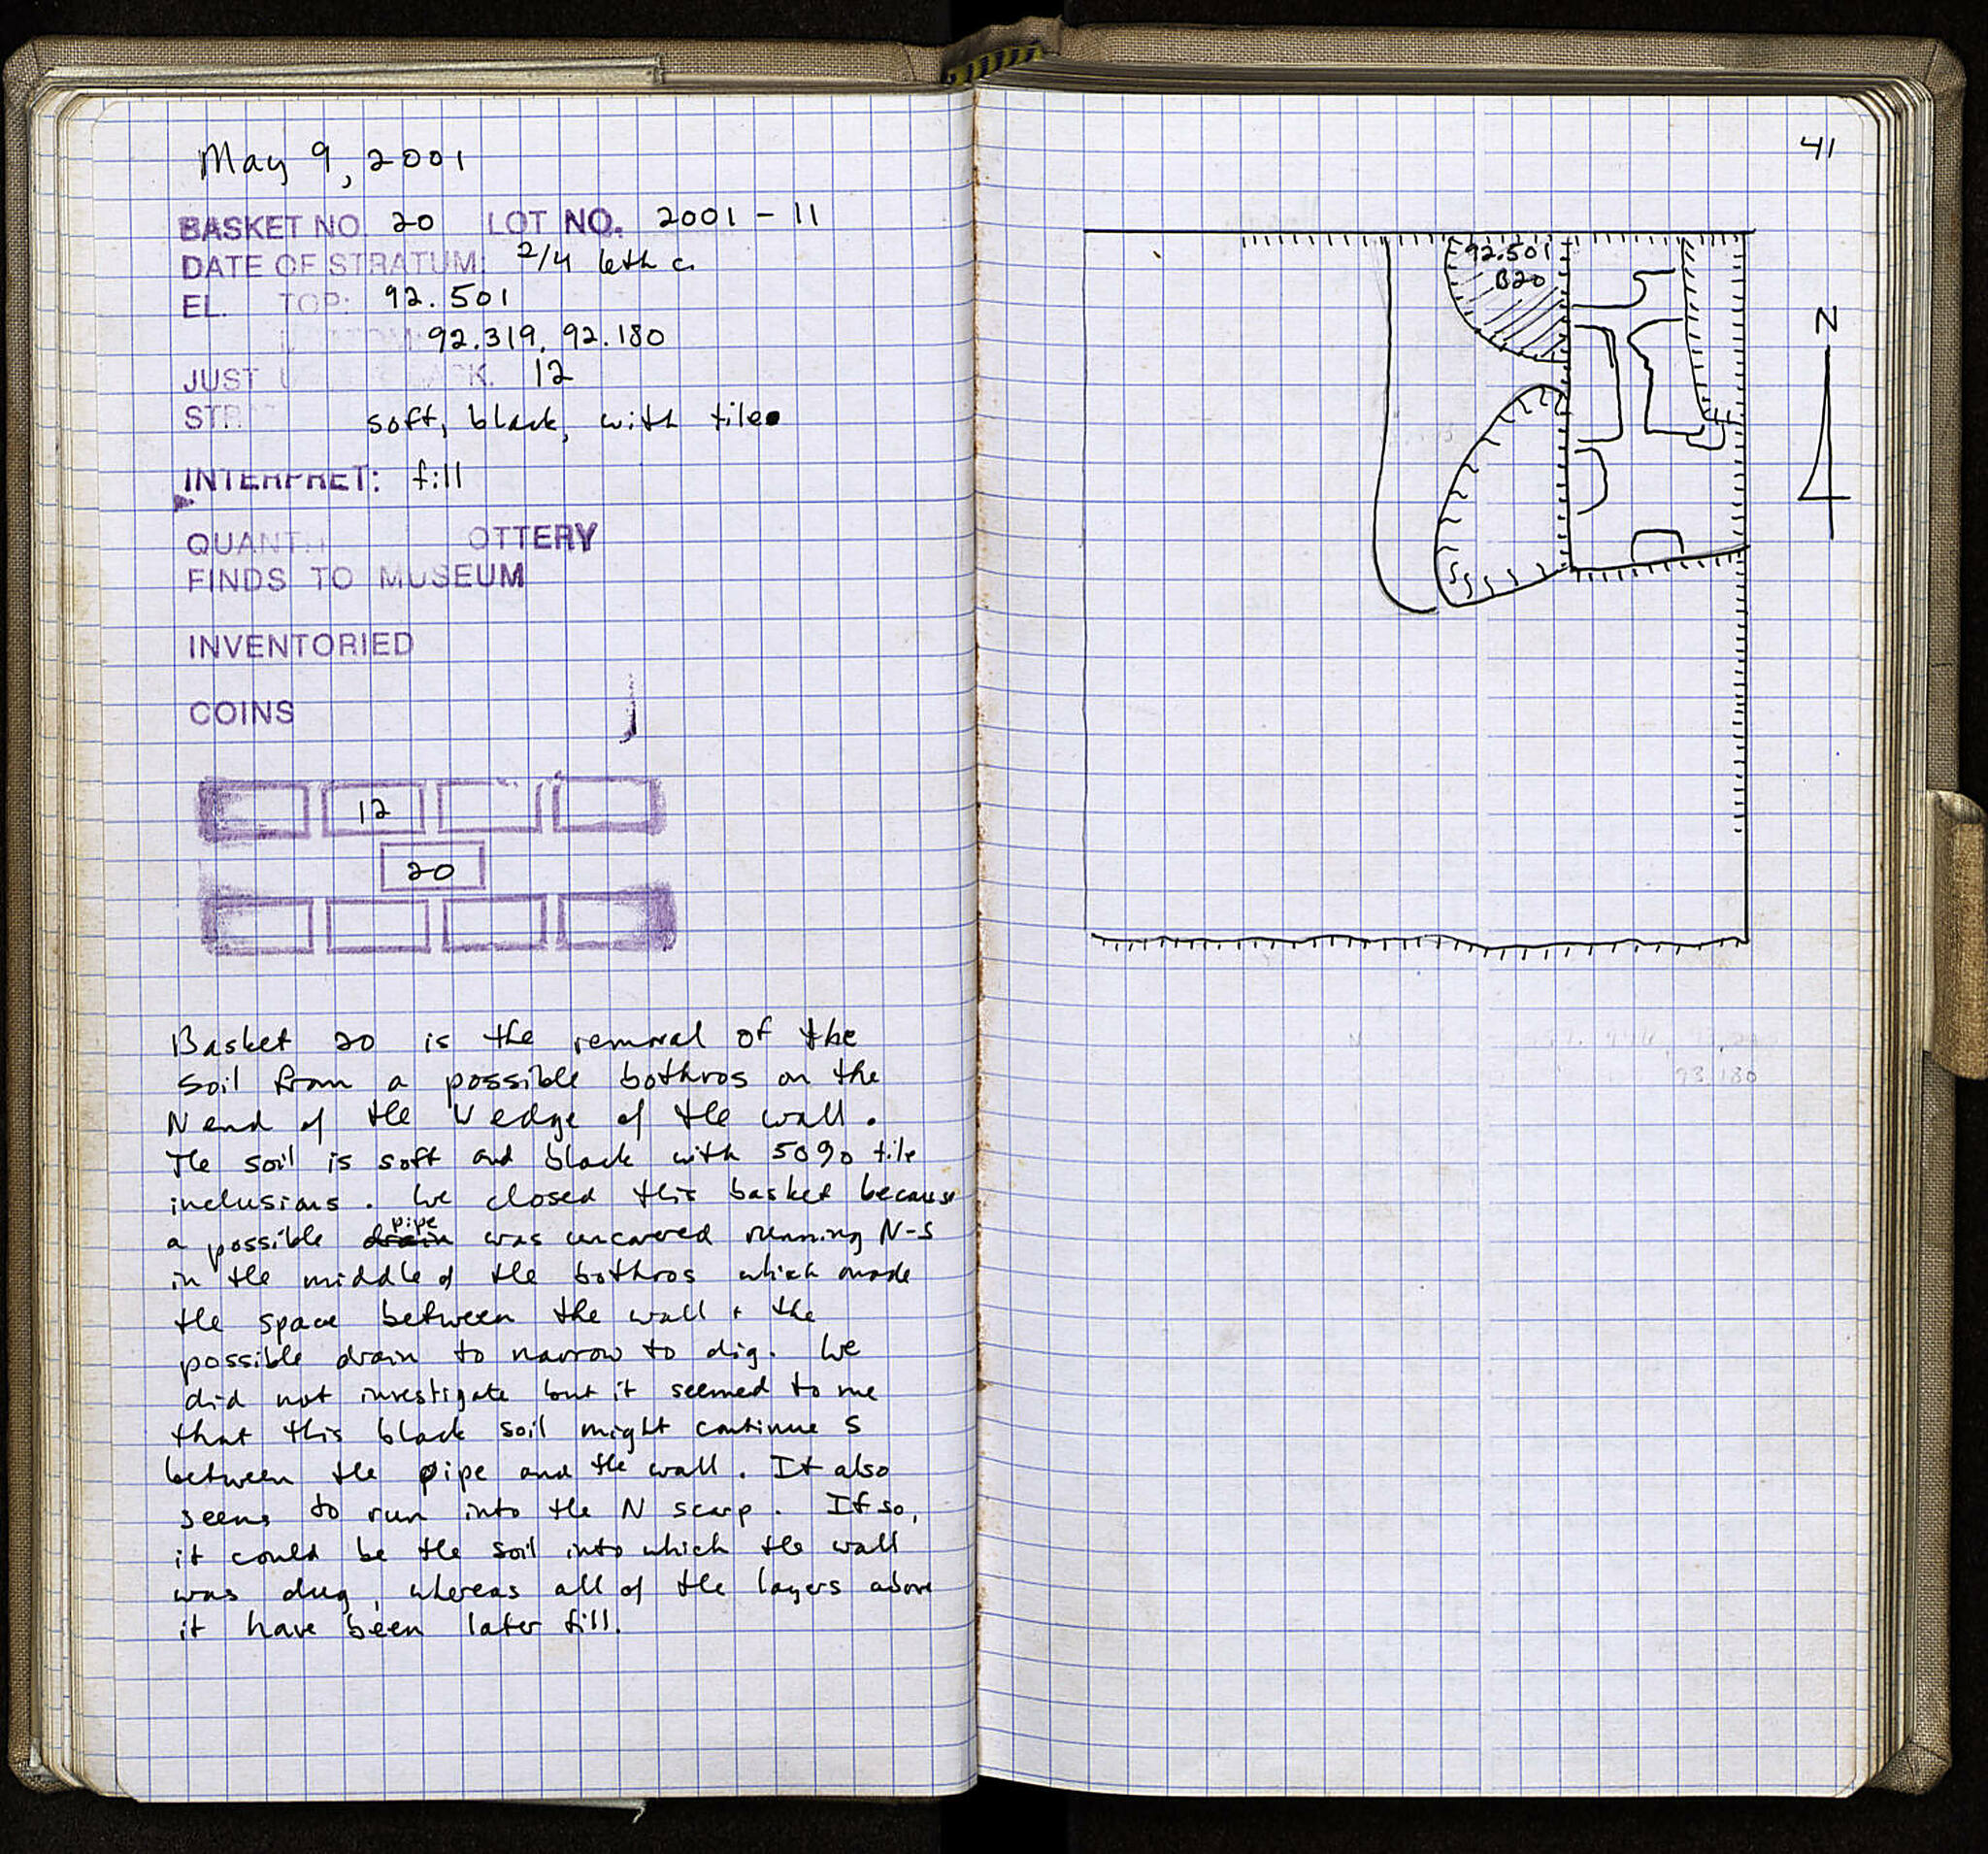 May 9, 2001
BASKET NO. 20 LOT NO. 2001 - 11
DATE OF STRATUM: 2/4 6th c.
EL. TOP: 92.501
92.319, 92.180
JUST 12
soft, black, with tile
INTERPRET: fill
QUANT OTTERY
FINDS TO MUSEUM
INVENTORIED
COINS
12
20
Basket 20 is the removal of the
soil from a possible bothros on the
N end of the W edge of the wall.
The soil is soft and black with 50% tile
inclusions. We closed this basket because
a possible drain pipe was uncovered running N-S
in the middle of the bothros which made
the space between the wall + the
possible drain to narrow to dig. We
did not investigate but it seemed to me
that this black soil might continue S
between the pipe and the wall. It also
seems to run into the N scarp. If so,
it could be the soil into which the wall
was dug, whereas all of the layers above
it have been later fill.
41
92.501
B20
N